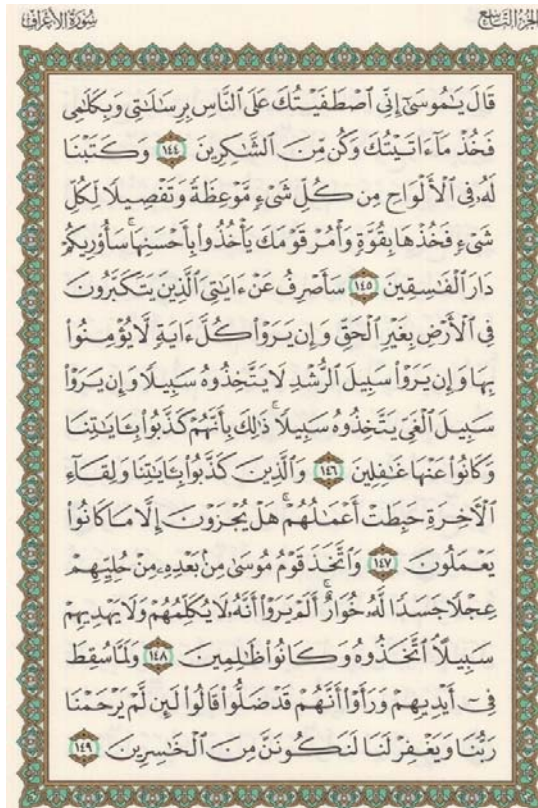 سُورَةُ الأَعْرَافِ
الجُزْءُ التَّاسِعُ
قَالَ يَٰمُوسَىٰٓ إِنِّى ٱصْطَفَيْتُكَ عَلَى ٱلنَّاسِ بِرِسَٰلَٰتِى وَبِكَلَٰمِى
فَخُذْ مَآ ءَاتَيْتُكَ وَكُن مِّنَ ٱلشَّٰكِرِينَ ١٤٤ وَكَتَبْنَا
لَهُۥ فِى ٱلْأَلْوَاحِ مِن كُلِّ شَىْءٍ مَّوْعِظَةً وَتَفْصِيلًا لِّكُلِّ
شَىْءٍ فَخُذْهَا بِقُوَّةٍ وَأْمُرْ قَوْمَكَ يَأْخُذُوا۟ بِأَحْسَنِهَا ۚ سَأُو۟رِيكُمْ
دَارَ ٱلْفَٰسِقِينَ ١٤٥ سَأَصْرِفُ عَنْ ءَايَٰتِىَ ٱلَّذِينَ يَتَكَبَّرُونَ
فِى ٱلْأَرْضِ بِغَيْرِ ٱلْحَقِّ وَإِن يَرَوْا۟ كُلَّ ءَايَةٍ لَّا يُؤْمِنُوا۟
بِهَا وَإِن يَرَوْا۟ سَبِيلَ ٱلرُّشْدِ لَا يَتَّخِذُوهُ سَبِيلًا وَإِن يَرَوْا۟
سَبِيلَ ٱلْغَىِّ يَتَّخِذُوهُ سَبِيلًا ۚ ذَٰلِكَ بِأَنَّهُمْ كَذَّبُوا۟ بِـَٔايَٰتِنَا
وَكَانُوا۟ عَنْهَا غَٰفِلِينَ ١٤٦ وَٱلَّذِينَ كَذَّبُوا۟ بِـَٔايَٰتِنَا وَلِقَآءِ
ٱلْـَٔاخِرَةِ حَبِطَتْ أَعْمَٰلُهُمْ ۚ هَلْ يُجْزَوْنَ إِلَّا مَا كَانُوا۟
يَعْمَلُونَ ١٤٧ وَٱتَّخَذَ قَوْمُ مُوسَىٰ مِنۢ بَعْدِهِۦ مِنْ حُلِيِّهِمْ
عِجْلًا جَسَدًا لَّهُۥ خُوَارٌ ۚ أَلَمْ يَرَوْا۟ أَنَّهُۥ لَا يُكَلِّمُهُمْ وَلَا يَهْدِيهِمْ
سَبِيلًا ٱتَّخَذُوهُ وَكَانُوا۟ ظَٰلِمِينَ ١٤٨ وَلَمَّا سُقِطَ
فِىٓ أَيْدِيهِمْ وَرَأَوْا۟ أَنَّهُمْ قَدْ ضَلُّوا۟ قَالُوا۟ لَئِن لَّمْ يَرْحَمْنَا
رَبُّنَا وَيَغْفِرْ لَنَا لَنَكُونَنَّ مِنَ ٱلْخَٰسِرِينَ ١٤٩